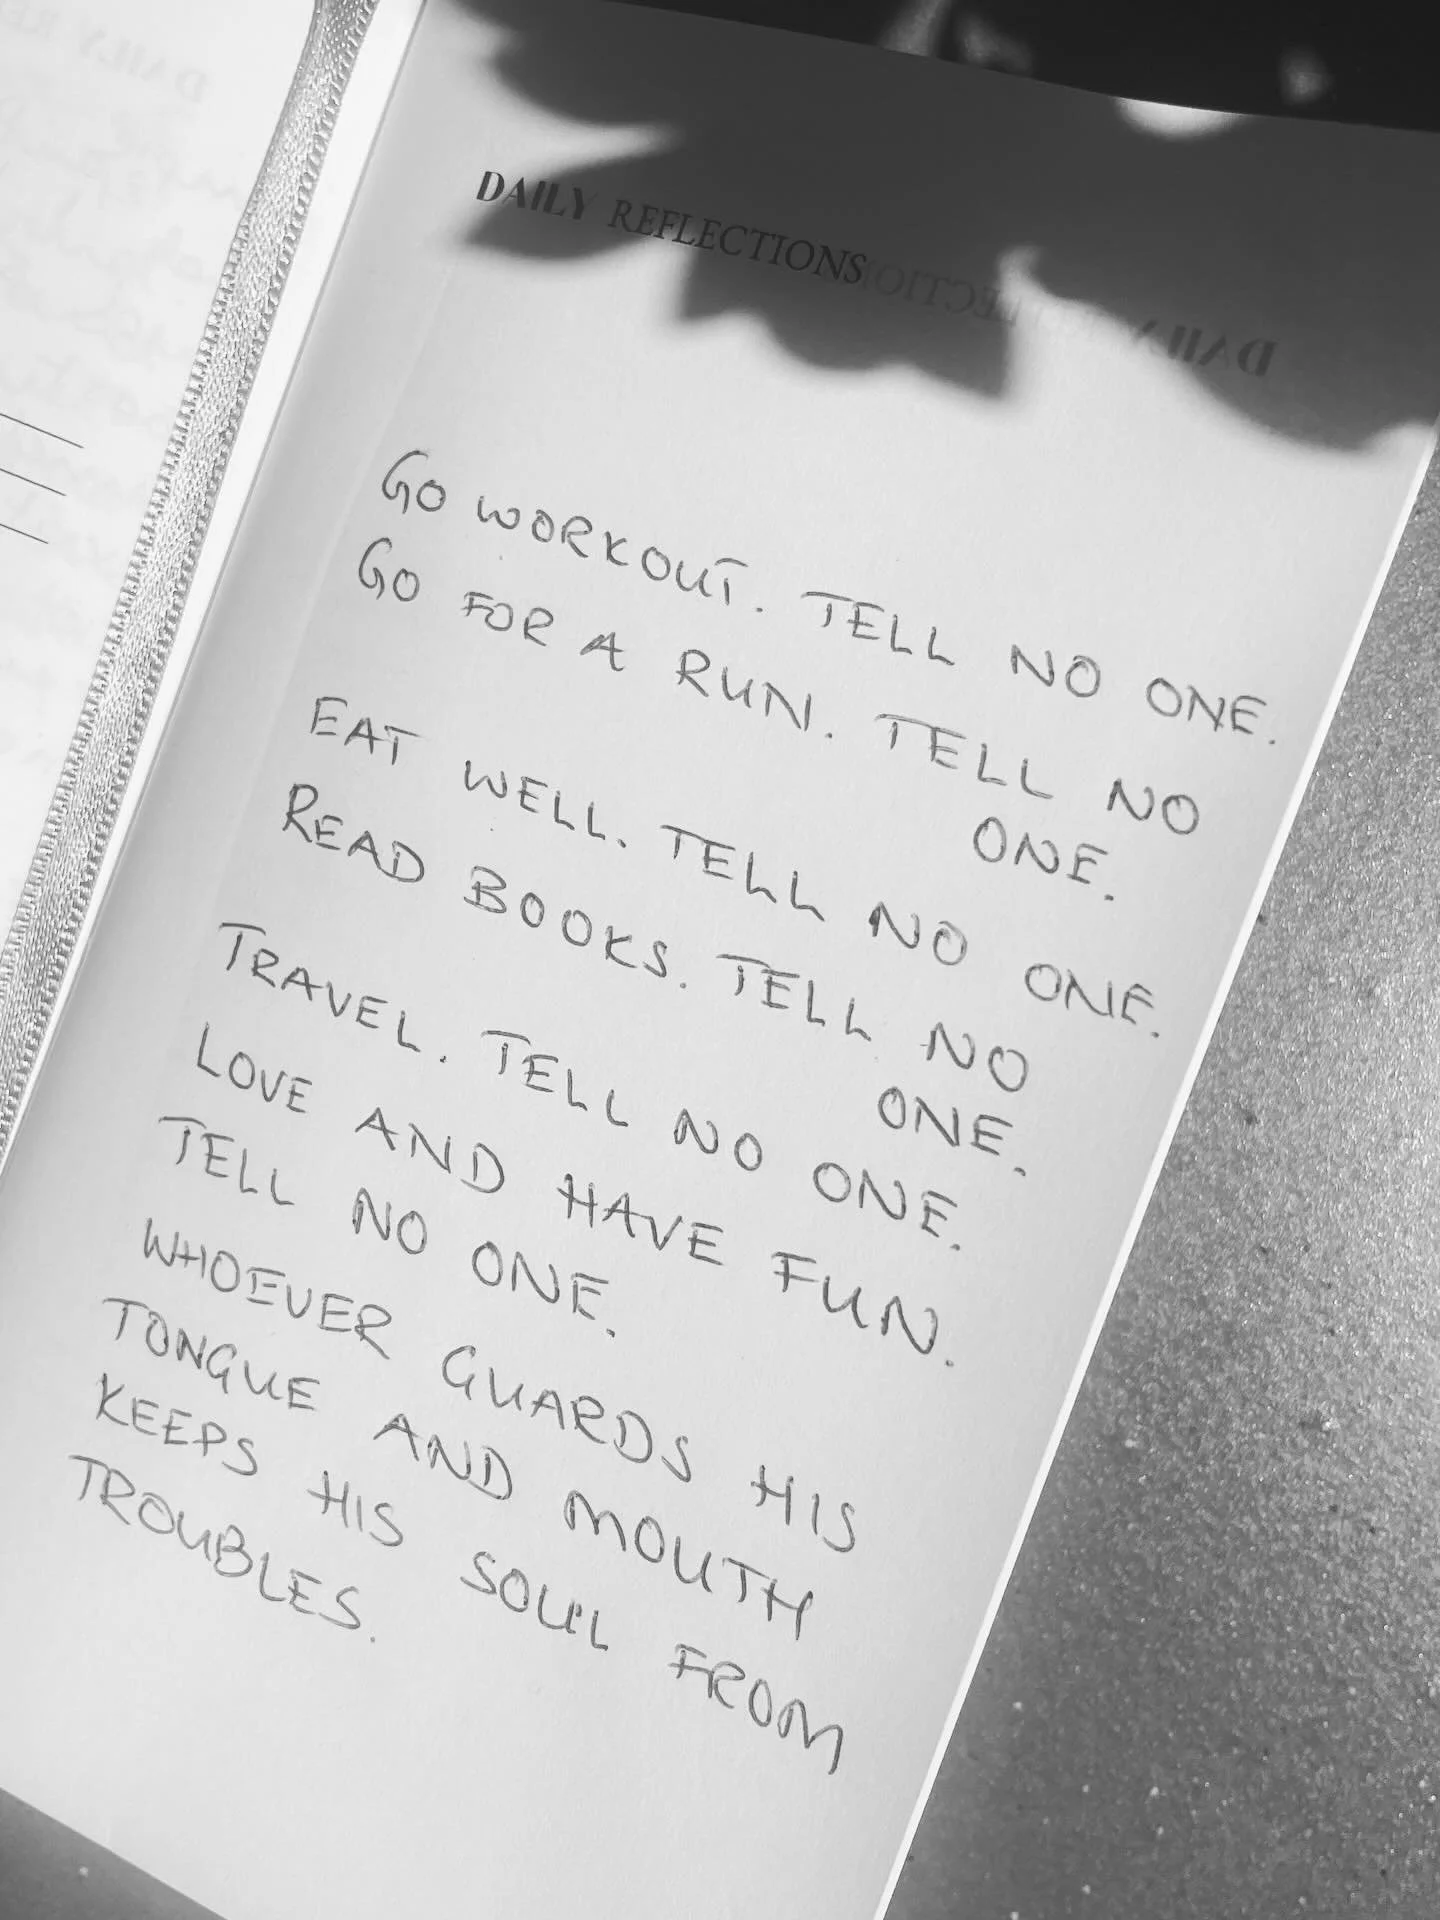 DAILY REFLECTIONS
GO WORKOUT. TELL NO ONE.
GO FOR A RUN. TELL NO
ONE.
EAT WELL. TELL NO ONE.
READ BOOKS. TELL NO
ONE.
TRAVEL. TELL NO ONE.
LOVE AND HAVE FUN.
TELL NO ONE.
WHOEVER GUARDS HIS
TONGUE AND MOUTH
KEEPS HIS SOUL FROM
TROUBLES.